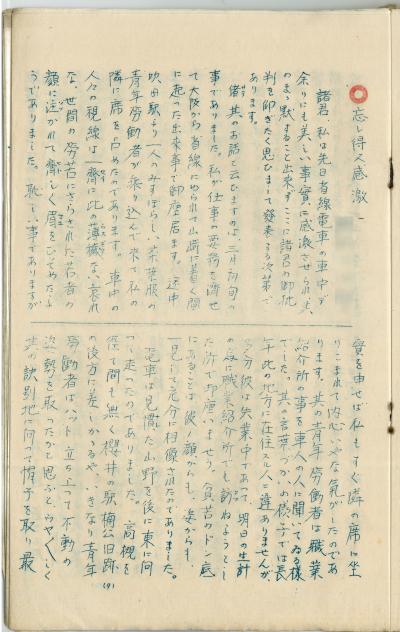 忘レ得又感激一
諸君、私は先日省線電車の車中で
余りにも美しい事實に感激させられ、其
のまゝ黙すること出来ず、ここに諸君の御批
判を仰ぎたく思ひまして發表する次第で
あります。
偖其のお話と云ひますのは、三月初旬の
事でありました。私が仕事の要務を濟せ
て大阪から省線にゆられて山崎に着く間
に起った出来事で御座居ます。途中
吹田駅より一人のみすぼらしい菜葉服の
青年労働者が乗り込んで来て私の
隣に席を占めたのであります。車中の
人々の視線は一齊に此の薄穢ない哀れ
な、世間の労苦にさらされた若者の
顔に注がれて齊しく眉をひそめたや
うでありました。恥しい事でありますが
實を申せば私もすぐ隣の席に坐
りこまれて内心いやな気がしたのであ
ります。其の青年労働者は職業
紹介所の事を車人の人に聞いてゐる様
でした。其の言葉つかひの様子では長
年此の地方に在住スル人に違ありませんが、
多分彼は失業中であって明日の生計
の為に職業紹介所でも訪ねようとし
た所で御座いませう。貧苦のドン底
にあることは彼ノ顔からも、姿からも、
一見して充分に想像されたのでありました。
電車は見慣れた山野を後に東に向
つて走ったのでありました。高槻を
保て間も無く櫻井の駅楠公旧跡
の後方に差しかゝるや、いきなり青年
労働者はハット立ち上って不動の
姿勢を取ったかと思ふとうやくしく
其の訣別地に向って帽子を取り最
(9)